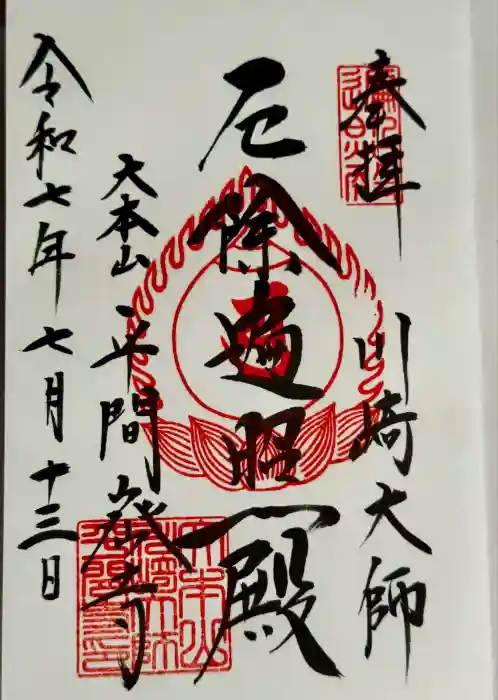 奉拝
川崎大師
厄除遍照殿
大本山
平間寺
令和七年七月十三日